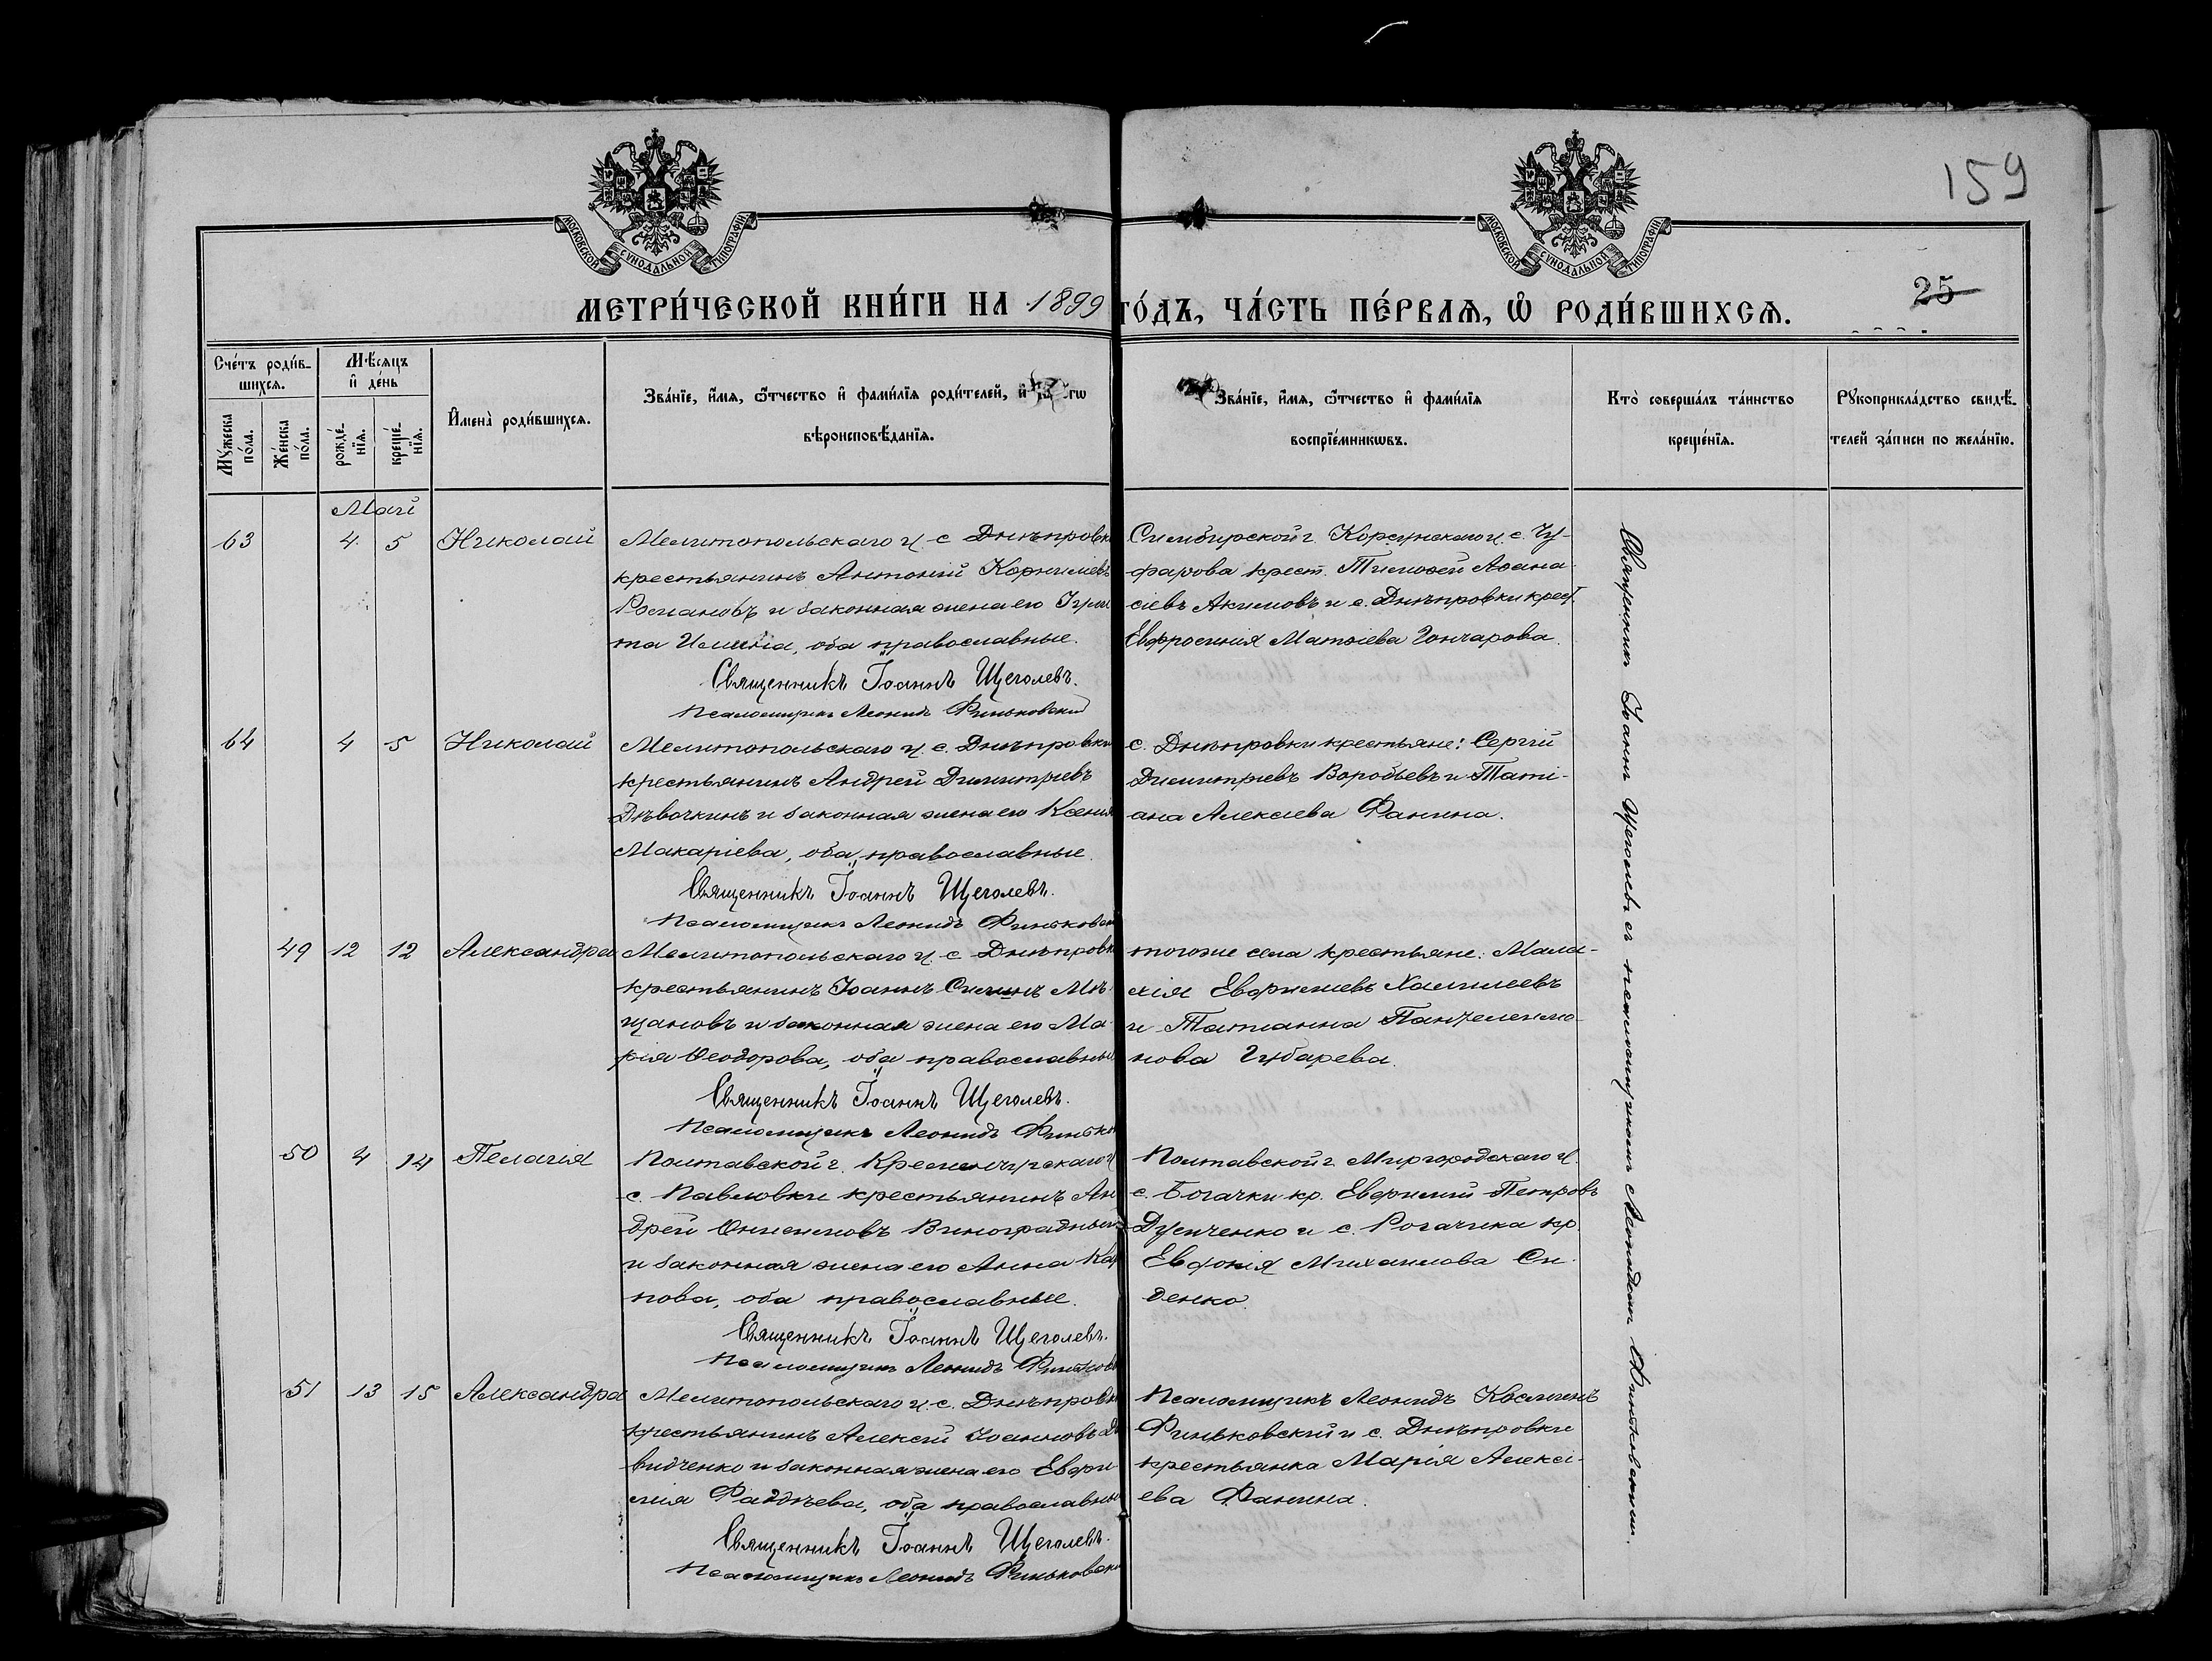 159
МОСКОВСКОЙ СУНОДАЛЬНОЙ ТИПОГРАФІИ
МОСКОВСКОЙ СУНОДАЛЬНОЙ ТИПОГРАФІИ
25
МЕТРИ́ЧЕСКОЙ КНИ́ГИ НА 1899 ГО́ДЪ, ЧА́СТЬ ПЕ́РВАѦ, Ѡ҆ РОДИ́ВШИХСѦ.
Сче́тъ роди́в-
шихсѧ.
Мꙋ́жеска по́ла.
Же́нска по́ла.
Мѣ́сѧцъ
и҆ де́нь
рожде́-
нїѧ.
креще́-
нїѧ.
И҆мена̀ роди́вшихсѧ.
Зва́нїе, и҆́мѧ, ѻ҆́тчество и҆ фами́лїѧ роди́телей, и҆
вѣроисповѣ́данїѧ.
Зва́нїе, и҆́мѧ, ѻ҆́тчество и҆ фами́лїѧ
воспрїе́мникѡвъ.
Кто̀ соверша́лъ та́инство
креще́нїѧ.
Рꙋкоприкла́дство свидѣ́-
телей за́писи по жела́нїю.
Май
63 4 5 Николай
Мелитопольскаго у. с. Днѣпровки
крестьянинъ Антоній Корнилiевъ
Романовъ и законная жена его
оба православные.
Священникъ Іоаннъ Щеголевъ.
Псаломщикъ Леонидъ Финьковскій
Симбирской г. Корсунскаго у. с. Чу-
фарова крест. Тимоѳей Аѳана-
сіевъ Акимовъ и с. Днѣпровки крест.
Евфросинія Матѳіева Гончарова.
64 4 5 Николай
Мелитопольскаго у. с. Днѣпровки
крестьянинъ Андрей Димитріевъ
Дѣвочкинъ и законная жена его Ксенія
Макаріева, оба православные.
Священникъ Іоаннъ Щеголевъ.
Псаломщикъ Леонидъ Финьковскій
с. Днѣпровки крестьяне: Сергій
Димитріевъ Воробьевъ и Таті-
ана Алексіева Фанина.
49 12 12 Александра
Мелитопольскаго у. с. Днѣпровки
крестьянинъ Іоаннъ Мѣ-
щановъ и законная жена его Ма-
рія Ѳеодорова, оба православные
Священникъ Іоаннъ Щеголевъ.
Псаломщикъ Леонидъ Финьков
тогоже села крестьяне: Мала-
хія Евфиміевъ
и Татіанна Пантелеимо-
нова Губарева.
50 4 14 Пелагія
Полтавской г. Кременчугскаго у
с. Павловки крестьянинъ Ан
дрей Онисимовъ Виноградный
и законная жена его Анна Кар
пова, оба православные.
Священникъ Іоаннъ Щеголевъ.
Псаломщикъ Леонидъ Финьков
Полтавской г. Миргородскаго у.
с. Богачки кр. Евфимій Петровъ
и с. Рогачика кр.
Михаилова Си-
денко.
51 13 15 Александра
Мелитопольскаго у. с. Днѣпровки
крестьянинъ Алексій Іоанновъ Да
видченко и законная жена его Евфи-
мія Фаддѣева, оба православные
Священникъ Іоаннъ Щеголевъ.
Псаломщикъ Леонидъ Финьковскій
Псаломщикъ Леонидъ Косминъ
Финьковскій и с. Днѣпровки
крестьянка Марія Алексі-
ева Фанина.
Священникъ Іоаннъ Щеголевъ съ псаломщикомъ Леонидомъ Финьковскимъ.